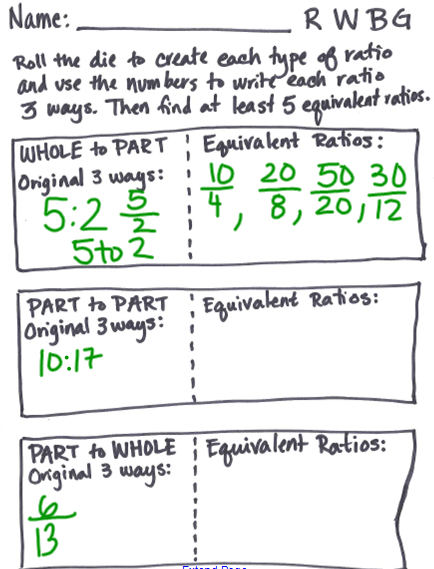 Name: ________________ R W B G
Roll the die to create each type of ratio
and use the numbers to write each ratio
3 ways. Then find at least 5 equivalent ratios.
WHOLE to PART
Original 3 ways:
5:2 5/2
5 to 2
Equivalent Ratios:
10/4, 20/8, 50/20, 30/12
PART to PART
Original 3 ways:
10:17
Equivalent Ratios:
PART to WHOLE
Original 3 ways:
6/13
Equivalent Ratios:
Extend Page